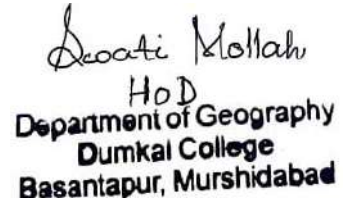 Swati Mollah
HOD
Department of Geography
Dumkal College
Basantapur, Murshidabad